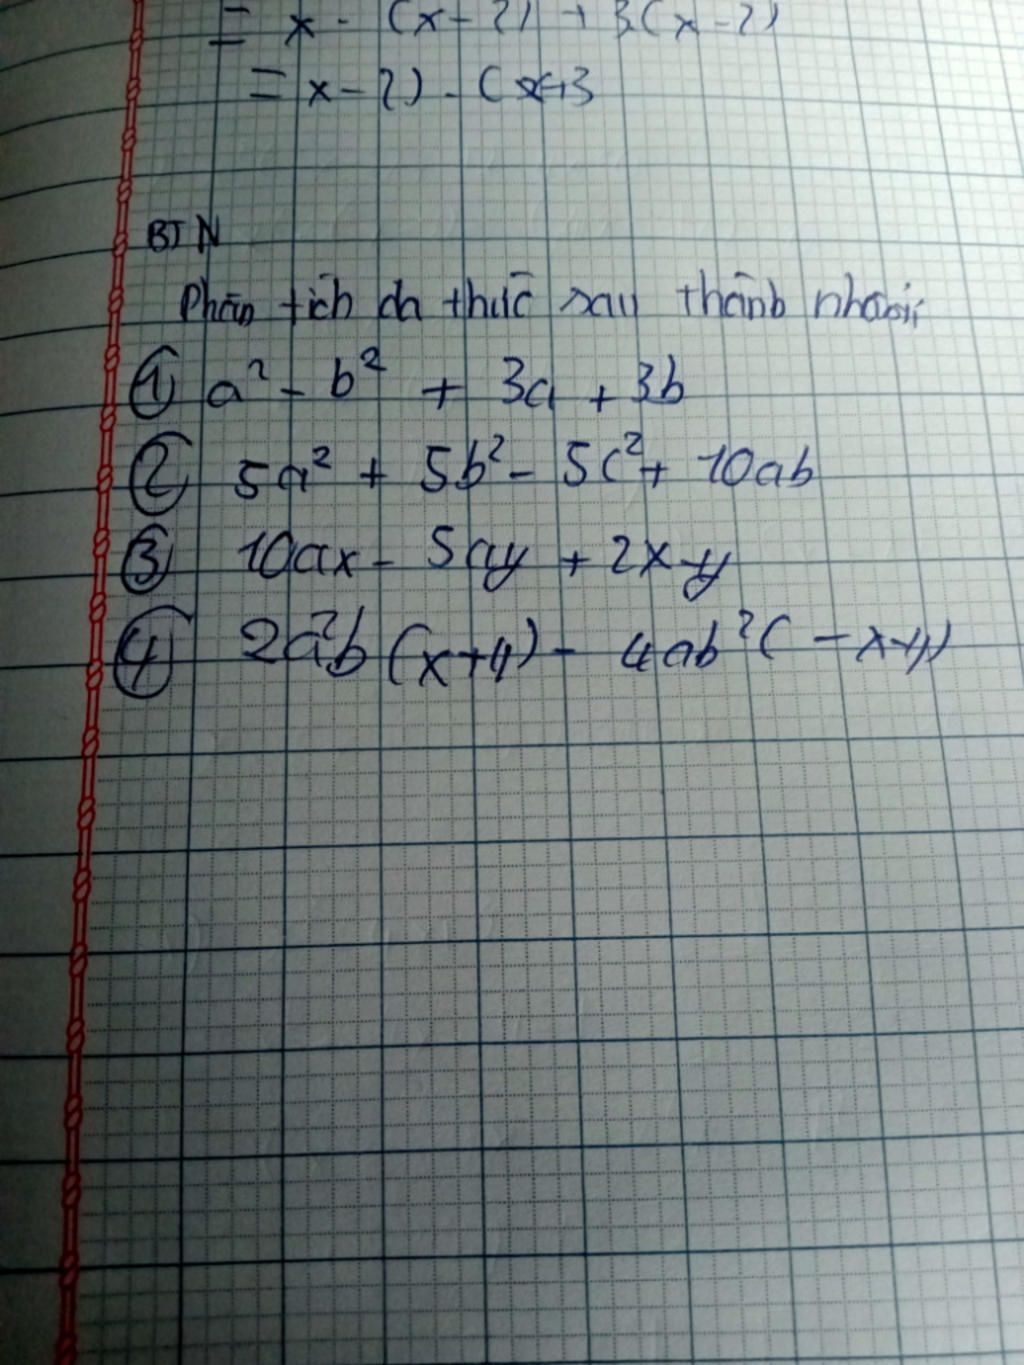 = x - (x-2) + 3(x-2)
= x-2) - (x+3
BTN
Phân tích đa thức sau thành nhân
① a² - b² + 3a + 3b
② 5a² + 5b² - 5c² + 10ab
③ 10ax - 5ay + 2x - y
④ 2a²b (x+4) - 4ab² ( -x-4)